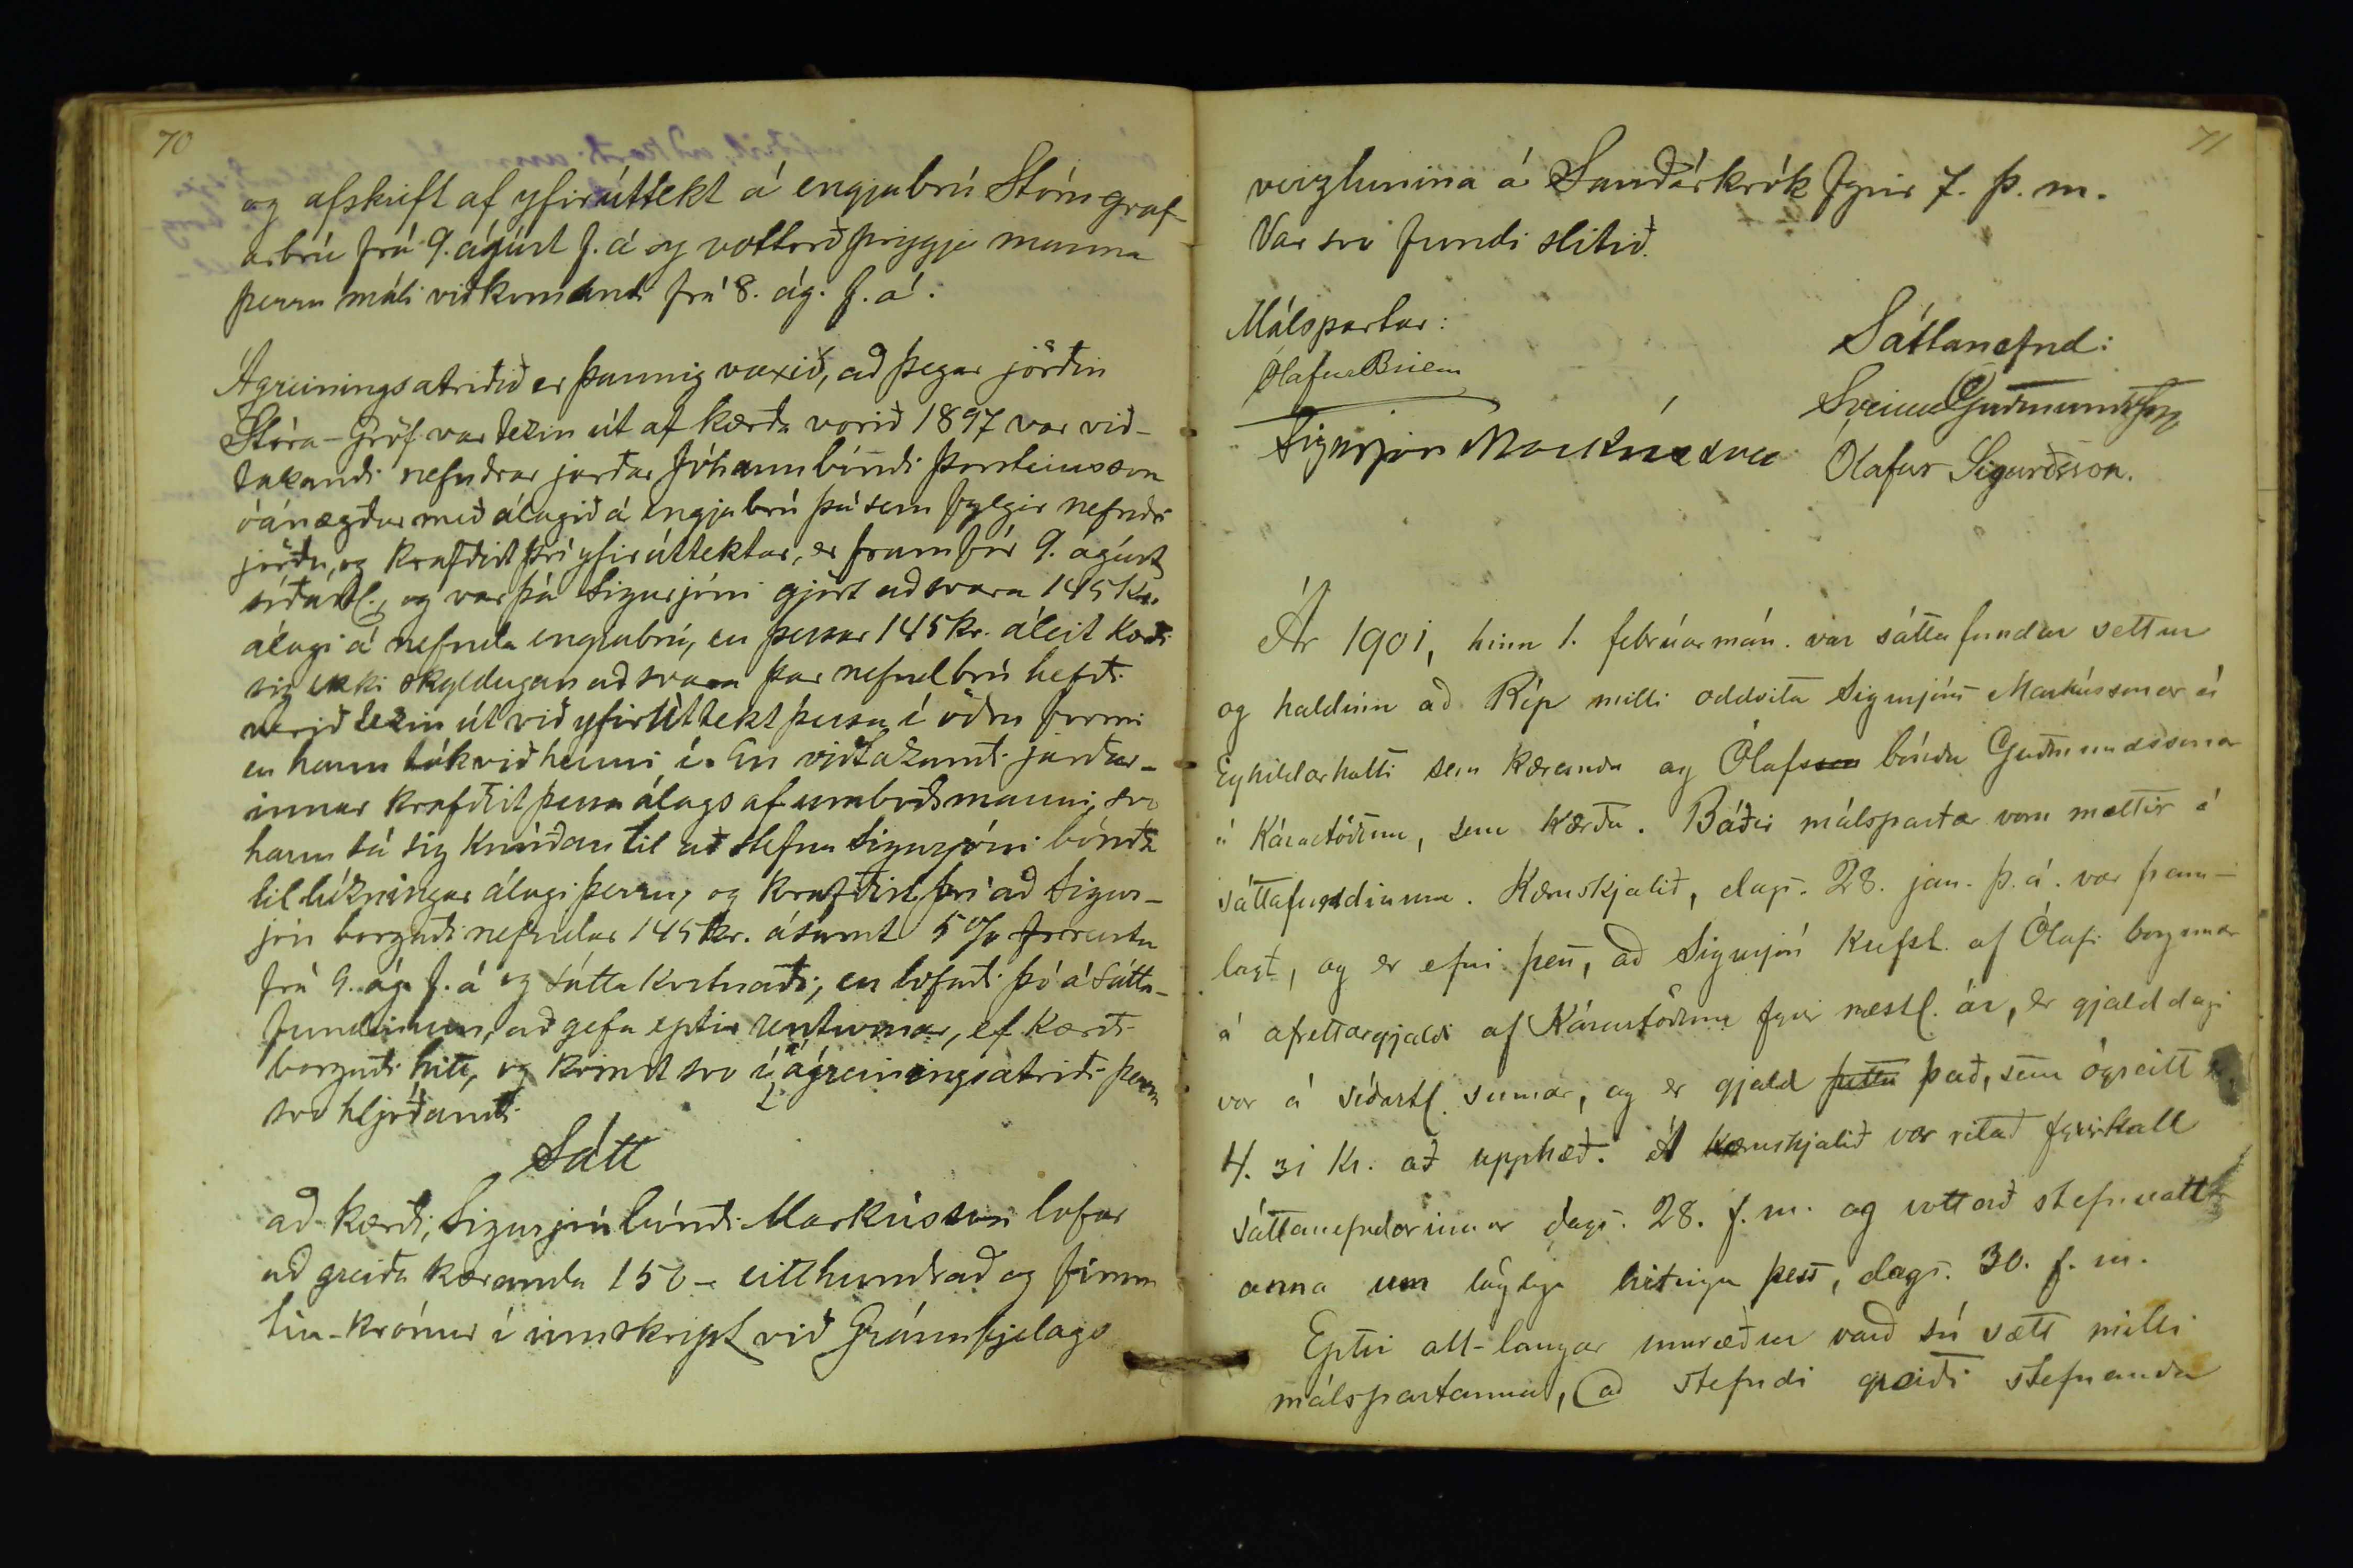 70
og afskrift af yfirúttekt á engjabrú Stóru graf-
arbrú frá 9. ágúst f. á og vottorð þriggja manna
þessu máli viðkomandi frá 8. ág. f. á.
Ágreiningsatriðið er þannig vaxið, að þegar jörðin
Stóra-Gröf var tekin út af kærða vorið 1897 var við-
takandi nefndrar jarðar Jóhann bóndi Þorsteinsson
óánægður með álagið á engjabrú þá sem fylgir nefndri
jörðu, og krafðist því yfirúttektar, er fram fór 9. ágúst
síðastl., og var þá Sigurjóni gjört að svara 145 kr.
álagi á nefnda engjabrú, en þessar 145 kr. áleit kærði
sig ekki skyldugan að svara þar nefnd brú hefði
verið tekin út við yfirúttekt þessa í öðru formi
en hann tók við henni í. En viðtakandi jarðar-
innar krafðist þessa álags af umboðsmanni, svo
hann sá sig knúðan til að stefna Sigurjóni bónda
til lúkningar álagi þessu, og krafðist því að Sigur-
jón borgaði nefndar 145 kr. ásamt 5% rentu
frá 9. ág. f. á og sáttakostnaði, en lofaði þó á sátta-
fundinum, að gefa eptir renturnar, ef kærði
borgaði hitt, og komst svo á í ágreiningsatriði þessu
svo hljóðandi
Sátt
að kærði, Sigurjón bóndi Markússon lofar
að greiða kæranda 150 - eitthundrað og fimm
tíu - krónur í innskript við Gránufjelags
71
verzlunina á Sauðárkrók fyrir 7. þ. m.
Var svo fundi slitið.
Málspartar:
Sáttanefnd:
Ólafur Briem
Sveinn Guðmundsson
Sigurjón Markússon
Ólafur Sigurðsson.
Ár 1901, hinn 1. febrúarmán. var sáttafundur settur
og haldinn að Ríp milli oddvita Sigurjóns Markússonar á
Eyhildarholti sem kæranda og Ólafs bónda Guðmundssonar
á Kárastöðum, sem kærða. Báðir málspartar voru mættir á
sáttafundinum. Kæruskjalið, dags. 28. jan. þ. á. var fram-
lagt, og er efni þess, að Sigurjón krefst af Ólafi borgunar
á afrettargjaldi af Kárastöðum fyrir næstl. ár, er gjalddagi
var á síðastl. sumar, og er gjald þetta það, sem ógreitt er
4. 31 kr. að upphæð. Á kæruskjalið var ritað fyrirkall
sáttanefndarinnar dags. 28. f. m. og vottorð stefnuvott
anna um löglega birtingu þess, dags. 30. f. m.
Eptir all-langar umræður varð sú sætt milli
málspartanna, að stefndi greiði stefnanda